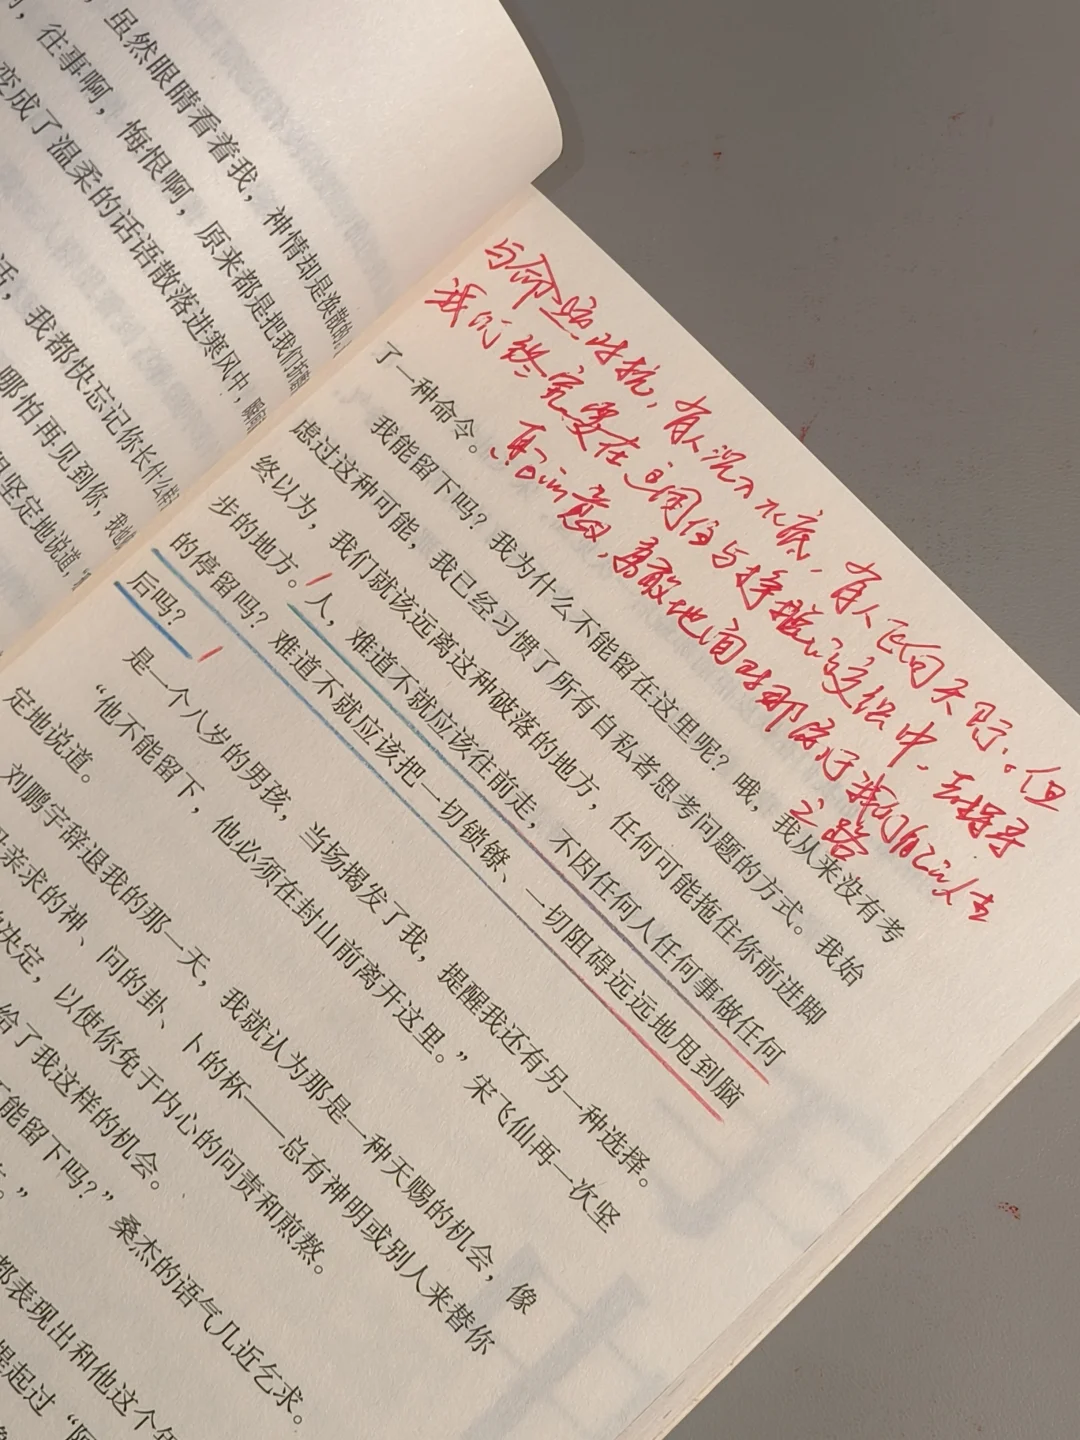 ，虽然眼睛看着我，神情却是涣散的
，往事啊，悔恨啊，原来都是把我们折磨
变成了温柔的话语散落进寒风中，瞬间
活，我都快忘记你长什么样
哪怕再见到你，我也
坚定地说道，“
与命运对抗，有人沉入水底，有人飞向天际。但
我们终究要在 困住与挣扎的交织中，去找寻
真正的意义，勇敢地面对那属于我们自己的人生
之路
了一种命令。
我能留下吗？我为什么不能留在这里呢？哦，我从来没有考
虑过这种可能，我已经习惯了所有自私者思考问题的方式。我始
终以为，我们就该远离这种破落的地方，任何可能拖住你前进脚
步的地方。人，难道不就应该往前走，不因任何人任何事做任何
的停留吗？难道不就应该把一切锁镣、一切阻碍远远地甩到脑
后吗？
是一个八岁的男孩，当场揭发了我，提醒我还有另一种选择。
“他不能留下，他必须在封山前离开这里。”宋飞仙再一次坚
定地说道。
刘鹏宇辞退我的那一天，我就认为那是一种天赐的机会，像
母亲求的神、问的卦、卜的杯——总有神明或别人来替你
决定，以使你免于内心的问责和煎熬。
给了我这样的机会。
不能留下吗？”桑杰的语气几近乞求。
。”
都表现出和他这个年
提起过“阿